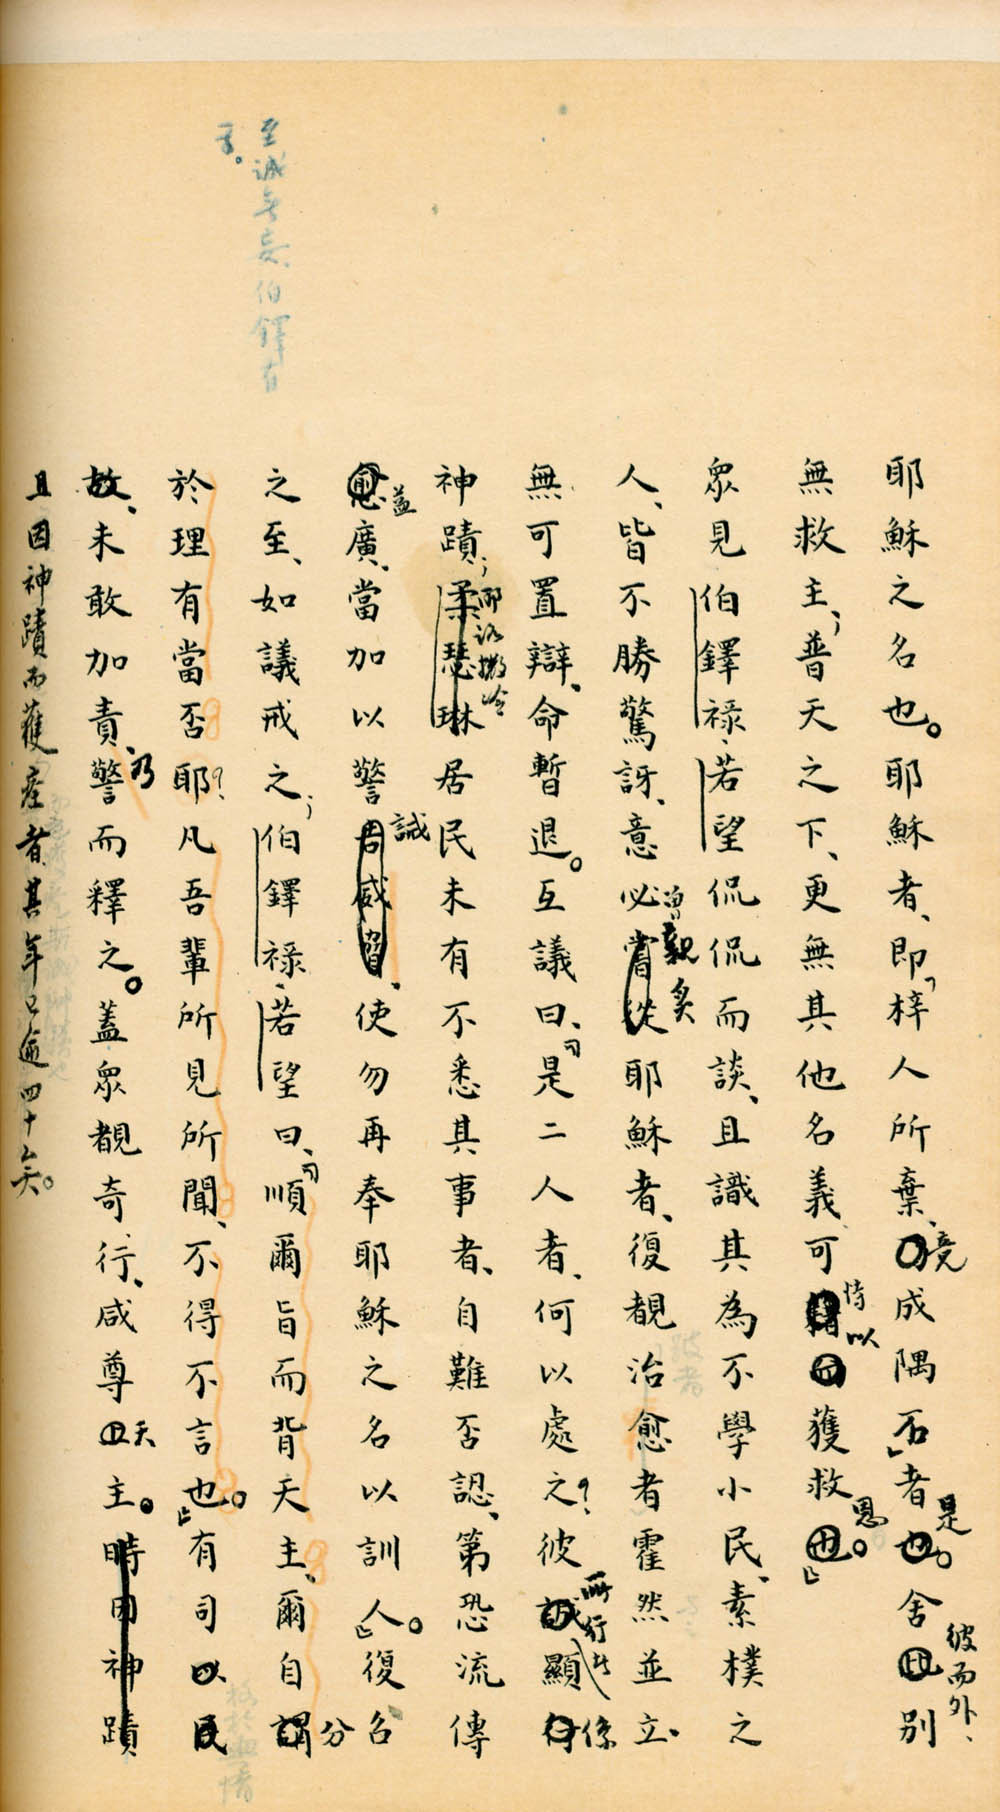 耶穌之名也。耶穌者、即「梓人所棄、竟成隅石」者是也。舍彼而外、別
無救主；普天之下、更無其他名義、可恃以獲救恩也。」
眾見伯鐸祿、若望侃侃而談、且識其為不學小民、素樸之
人、皆不勝驚訝、意必曾親炙耶穌者、復覩治愈者霍然並立、
無可置辯、命暫退。互議曰、「是二人者、何以處之？彼所行者、顯係
神蹟；耶路撒冷居民未有不悉其事者、自難否認、第恐流傳
益廣、當加以警誡、使勿再奉耶穌之名以訓人。」復召
之至、如議戒之；伯鐸祿、若望曰、「順爾旨而背天主、爾自分
於理有當否耶？凡吾輩所見所聞、不得不言也。」有司以民
故、未敢加責、乃警而釋之。蓋眾覩奇行、咸尊天主。時因神蹟
且因神蹟而獲痊者、其年已逾四十矣。
至誠無妄、伯鐸有
言。